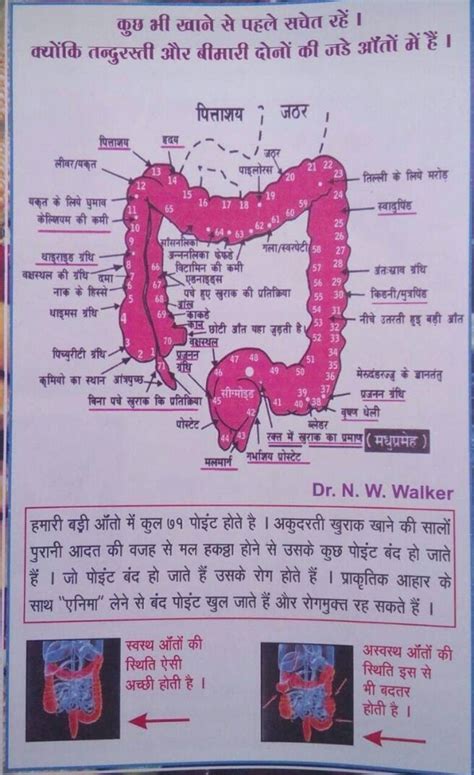 कुछ भी खाने से पहले सचेत रहें ।
क्योंकि तन्दुरस्ती और बीमारी दोनों की जडे आँतों में हैं ।
पित्ताशय जठर
पित्ताशय
हृदय
जठर
पाइलोरस
लीवर/यकृत
तिल्ली के लिये मरोड़
यकृत के लिये घुमाव
केल्शियम की कमी
स्वादुपिंड
सॉसनलिका
अन्ननलिका फेफडे
गला/स्वरपेटी
थाइराइड ग्रंथि
वक्षस्थल की ग्रंथि दमा
नाक के हिस्से
थाइमस ग्रंथि
विटामिन की कमी
एडनाइडस
पचे हुए खुराक की प्रतिक्रिया
आँख
काकडे
कान
छोटी आँत यहा जुड़ती है
अंतःस्राव ग्रंथि
किडनी/मुत्रपिंड
नीचे उतरती हुइ बडी आँत
पिच्युरीटी ग्रंथि
वक्षस्थल
प्रजनन
ग्रंथि
कृमियो का स्थान आंत्रपुच्छ
बिना पचे खुराक कि प्रतिक्रिया
मेरुदंडरज्जु के ज्ञानतंतु
प्रजनन ग्रंथि
वृषण थेली
ब्लेडर
सीग्मोइड
प्रोस्टेट
रक्त में खुराक का प्रमाण (मधुप्रमेह)
मलमार्ग
गर्भाशय प्रोस्टेट
Dr. N. W. Walker
हमारी बड़ी आँतो में कुल ७१ पोइंट होते है । अकुदरती खुराक खाने की सालों
पुरानी आदत की वजह से मल इकठ्ठा होने से उसके कुछ पोइंट बंद हो जाते
हैं । जो पोइंट बंद हो जाते हैं उसके रोग होते हैं । प्राकृतिक आहार के
साथ "एनिमा" लेने से बंद पोइंट खुल जाते हैं और रोगमुक्त रह सकते हैं ।
स्वस्थ आँतों की
स्थिति ऐसी
अच्छी होती है ।
अस्वस्थ आँतों की
स्थिति इस से
भी बदतर
होती है ।